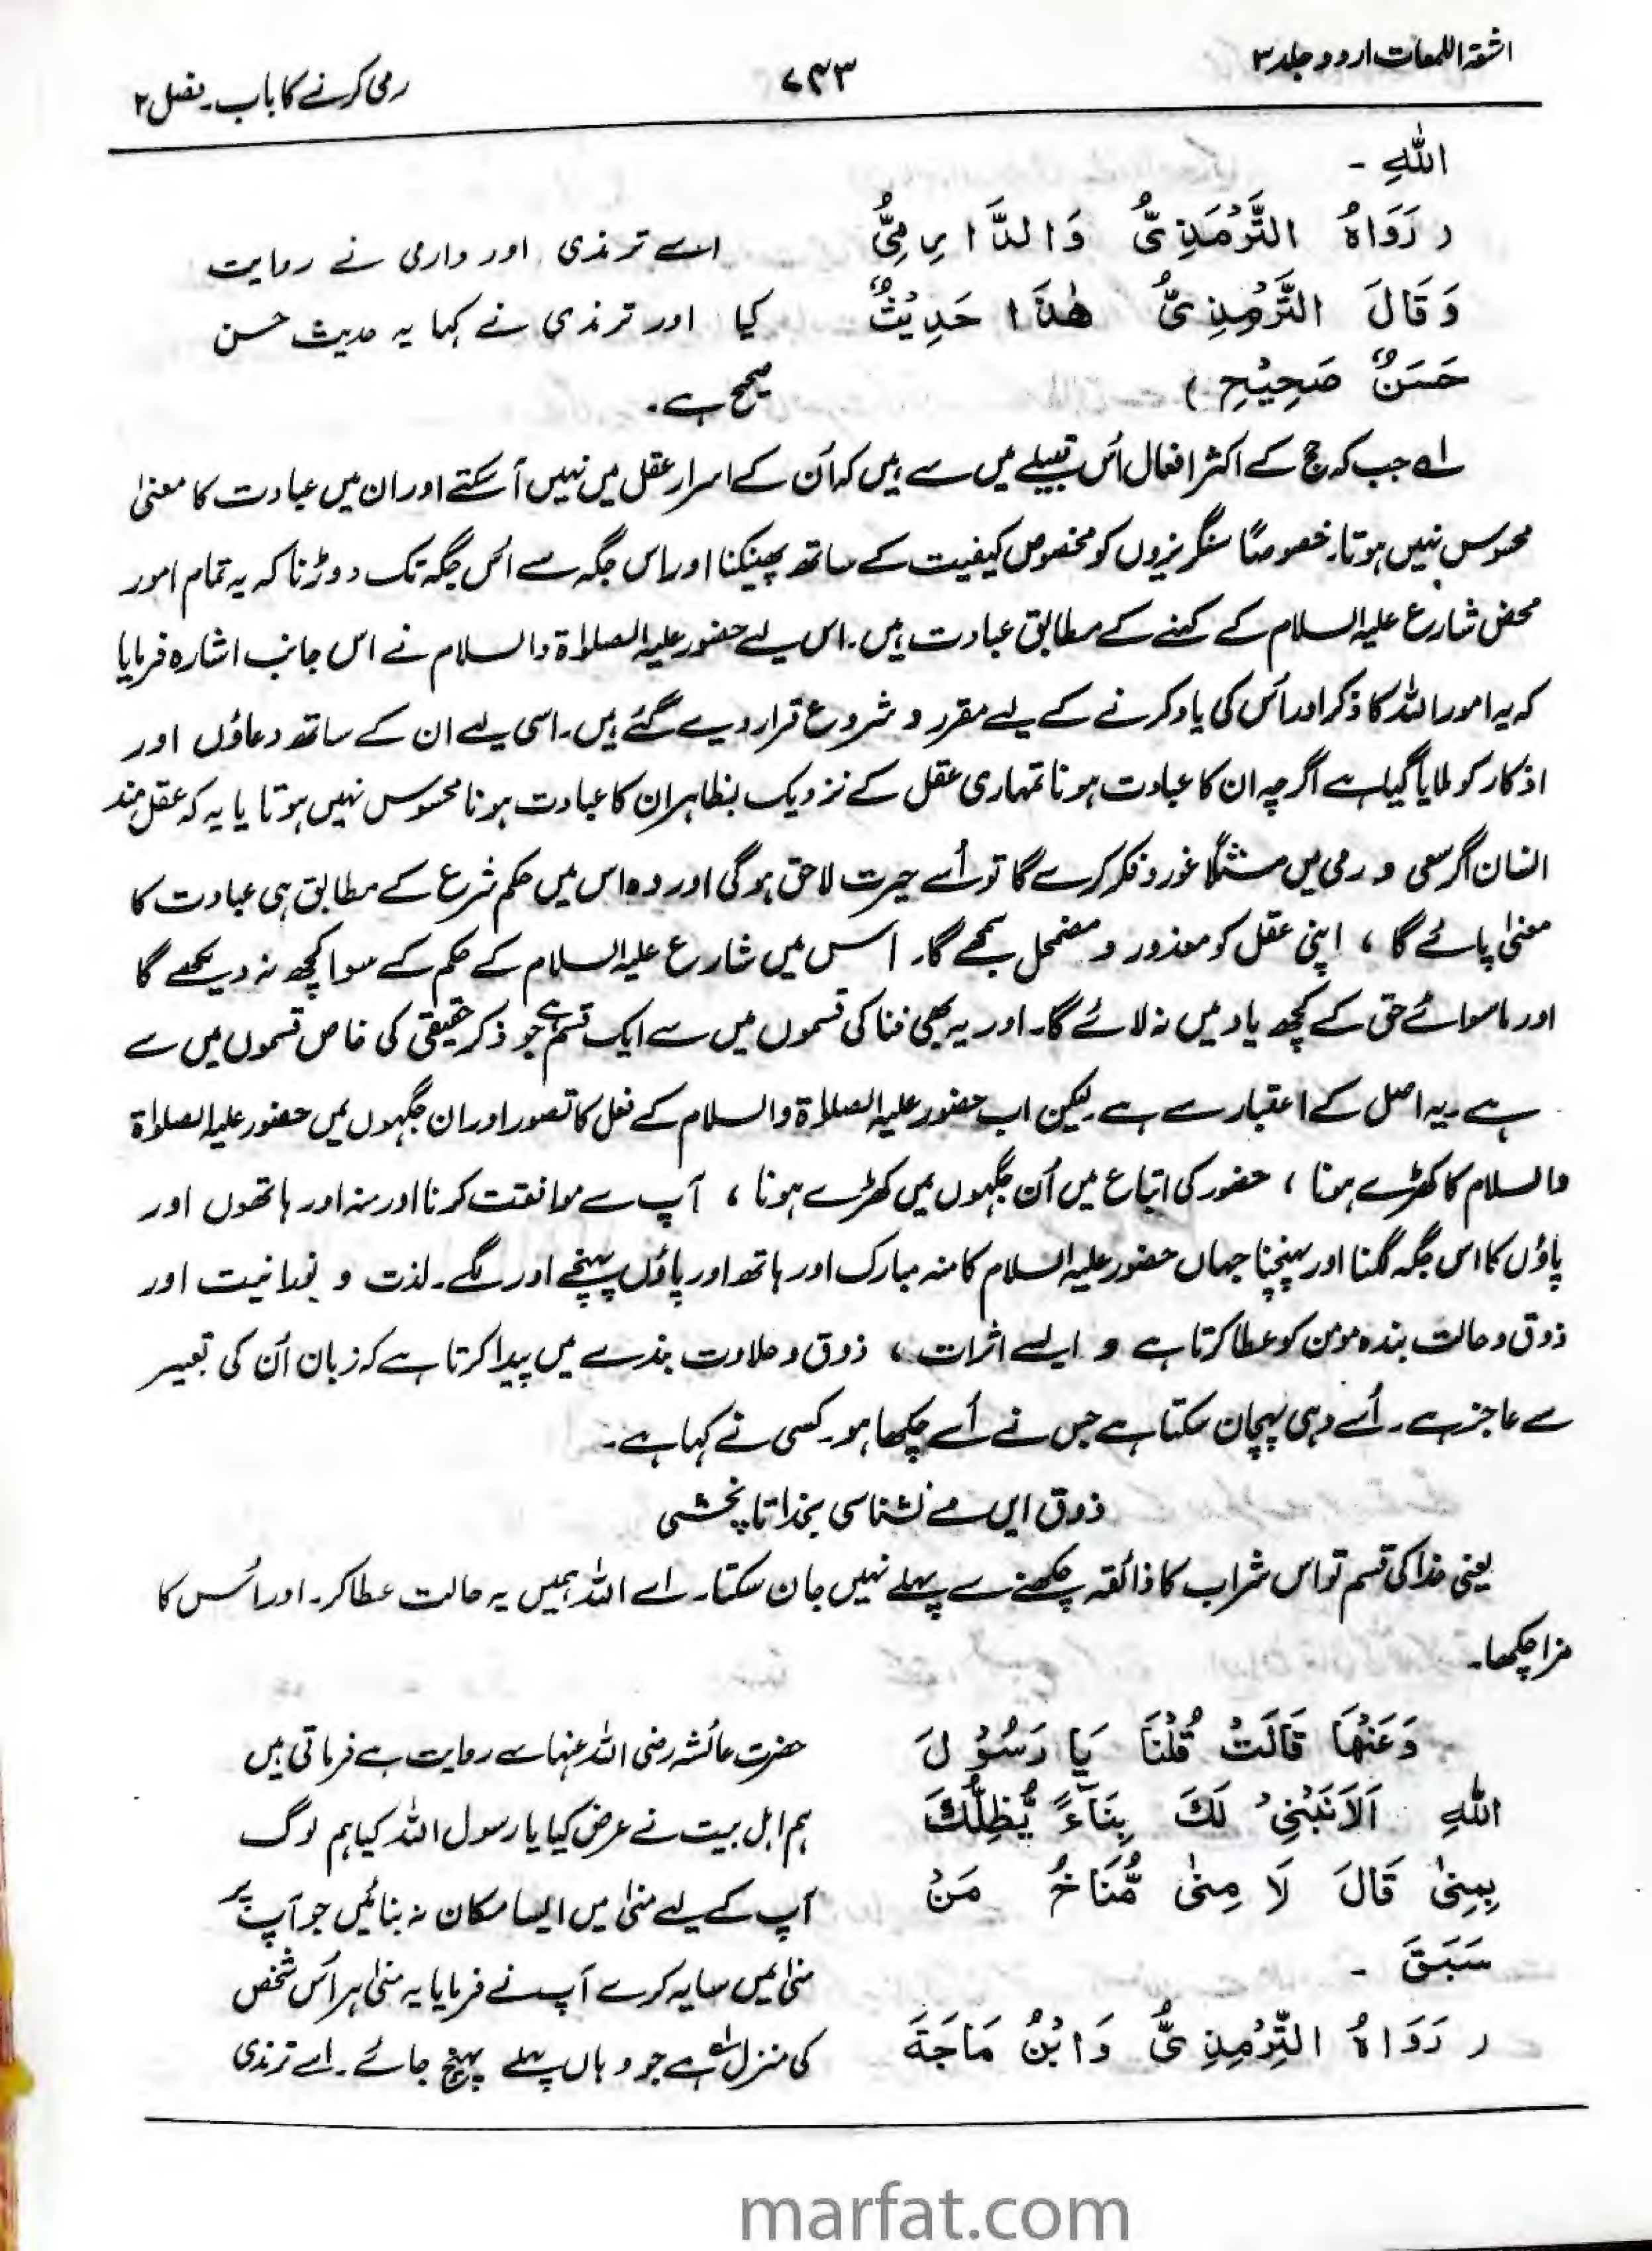 اشعۃ اللمعات اردو جلد ۳
۷۴۳
رمی کرنے کا باب۔ فصل ۲
اللّٰهِ -
(رَوَاهُ التِّرْمِذِيُّ وَالدَّارِمِيُّ
اسے ترمذی اور دارمی نے روایت
وَقَالَ التِّرْمِذِيُّ هٰذَا حَدِيْثٌ
کیا اور ترمذی نے کہا یہ حدیث حسن
حَسَنٌ صَحِيْحٌ)
صحیح ہے۔
لے جب کہ حج کے اکثر افعال اُس قبیلے میں سے ہیں کہ اُن کے اسرار عقل میں نہیں آ سکتے اور ان میں عبادت کا معنیٰ
محسوس نہیں ہوتا۔ خصوصًا سنگریزوں کو مخصوص کیفیت کے ساتھ پھینکنا اور اس جگہ سے اُس جگہ تک دوڑنا کہ یہ تمام امور
محض شارع علیہ السلام کے کہنے کے مطابق عبادت ہیں۔ اس لیے حضور علیہ الصلوٰۃ والسلام نے اس جانب اشارہ فرمایا
کہ یہ امور اللہ کا ذکر اور اُس کی یاد کرنے کے لیے مقرر و شروع قرار دیے گئے ہیں۔ اسی لیے ان کے ساتھ دعاؤں اور
اذکار کو ملایا گیا ہے اگرچہ ان کا عبادت ہونا تمہاری عقل کے نزدیک بظاہر ان کا عبادت ہونا محسوس نہیں ہوتا یا یہ کہ عقل مند
انسان اگر سعی و رمی میں مثلًا غور و فکر کرے گا تو اُسے حیرت لاحق ہو گی اور وہ اس میں حکم شرع کے مطابق ہی عبادت کا
معنیٰ پائے گا ، اپنی عقل کو معذور و مضمحل سمجھے گا۔ اُس میں شارع علیہ السلام کے حکم کے سوا کچھ نہ دیکھے گا
اور ماسوائے حق کے کچھ یاد میں نہ لائے گا۔ اور یہ بھی فنا کی قسموں میں سے ایک قسم ہے جو ذکر حقیقی کی خاص قسموں میں سے
ہے۔ یہ اصل کے اعتبار سے ہے لیکن اب حضور علیہ الصلوٰۃ والسلام کے فعل کا تصور اور ان جگہوں میں حضور علیہ الصلوٰۃ
والسلام کا کھڑے ہونا ، حضور کی اتباع میں اُن جگہوں میں کھڑے ہونا ، آپ سے موافقت کرنا اور منہ اور ہاتھوں اور
پاؤں کا اس جگہ لگنا اور پہنچنا جہاں حضور علیہ السلام کا منہ مبارک اور ہاتھ اور پاؤں پہنچے اور لگے۔ لذت و نورانیت اور
ذوق و حالت بندہ مومن کو عطا کرتا ہے و ایسے اثرات ، ذوق و حلاوت بندے میں پیدا کرتا ہے کہ زبان اُن کی تعبیر
سے عاجز ہے۔ اُسے وہی پہچان سکتا ہے جس نے اُسے چکھا ہو۔ کسی نے کہا ہے۔
ذوق ایں مے نشناسی بخدا تا نچشی
یعنی خدا کی قسم تو اس شراب کا ذائقہ چکھنے سے پہلے نہیں جان سکتا۔ اے اللہ ہمیں یہ حالت عطا کر۔ اور اُس کا
مزا چکھا۔
وَعَنْهَا قَالَتْ قُلْنَا يَا رَسُوْلَ
حضرت عائشہ رضی اللہ عنہا سے روایت ہے فرماتی ہیں
اللّٰهِ اَلَا نَبْنِيْ لَكَ بِنَاءً يُّظِلُّكَ
ہم اہل بیت نے عرض کیا یا رسول اللہ کیا ہم لوگ
بِمِنٰى قَالَ لَا مِنٰى مُّنَاخُ مَنْ
آپ کے لیے منیٰ میں ایسا مکان نہ بنائیں جو آپ پر
سَبَقَ -
منیٰ میں سایہ کرے آپ نے فرمایا یہ منیٰ ہر اُس شخص
(رَوَاهُ التِّرْمِذِيُّ وَابْنُ مَاجَةَ
کی منزل ہے جو وہاں پہلے پہنچ جائے۔ اسے ترمذی
marfat.com